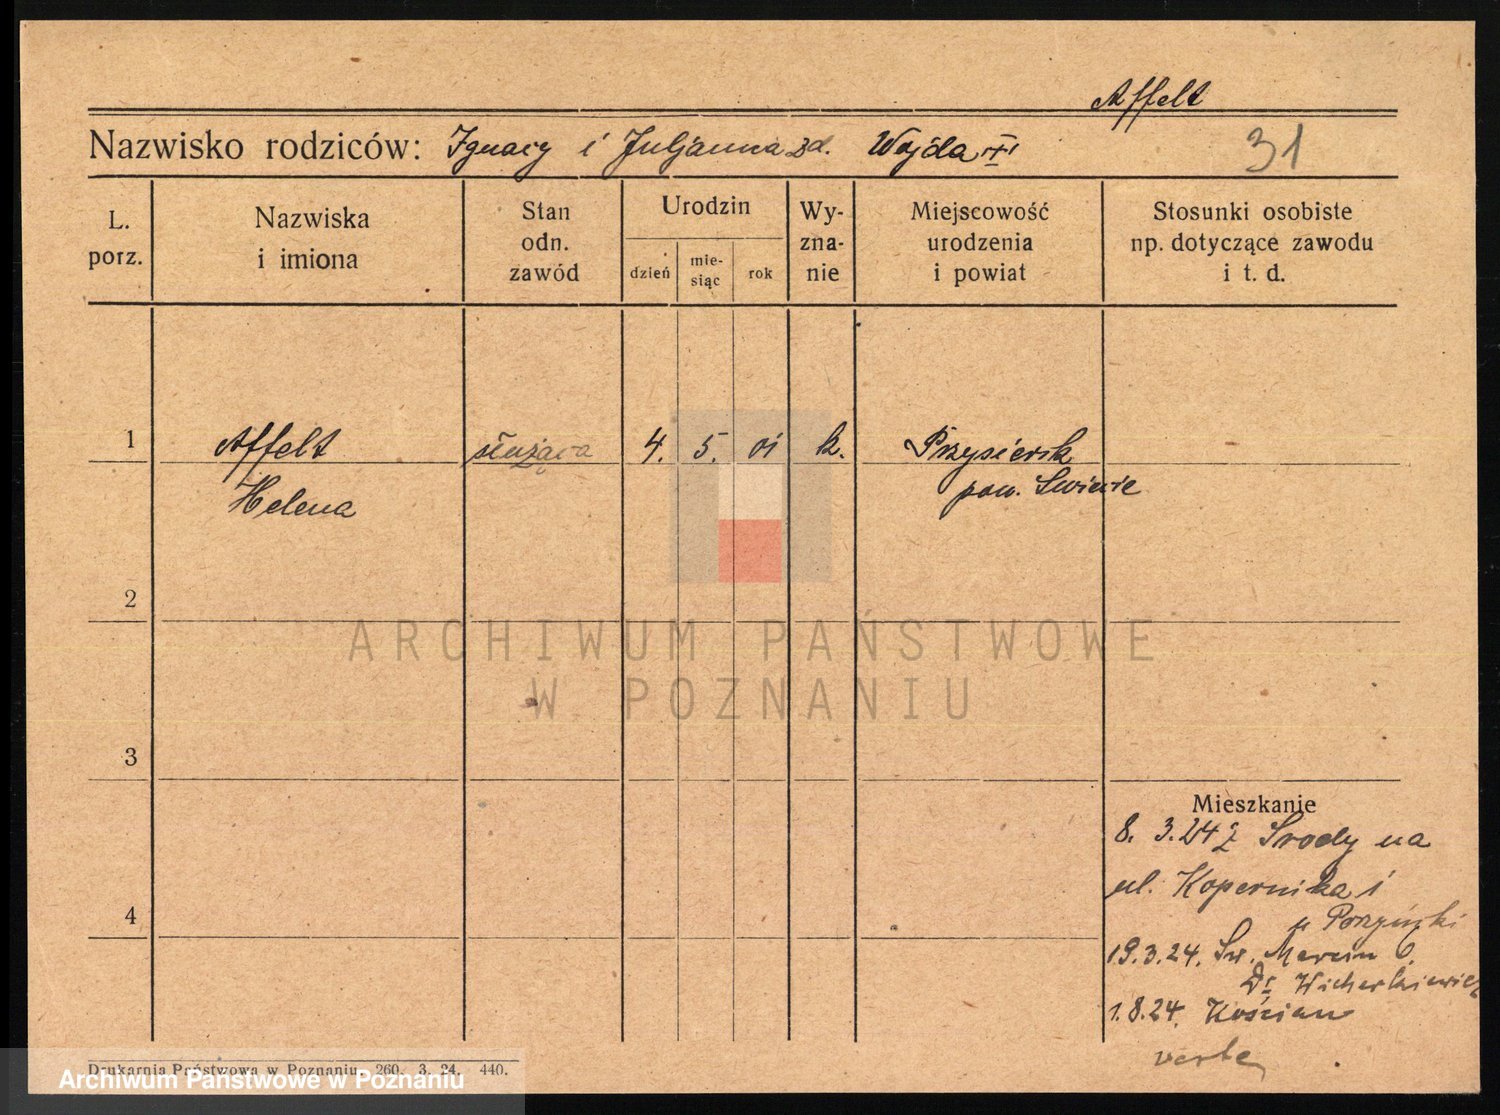 Affelt
Nazwisko rodziców: Ignacy i Juljanna zd. Wojda
31
L. porz.
Nazwiska i imiona
Stan odn. zawód
Urodzin
dzień
mie-siąc
rok
Wy-zna-nie
Miejscowość urodzenia i powiat
Stosunki osobiste np. dotyczące zawodu i t. d.
1
Affelt
służąca
4. 5. 01
k.
Przysiersk
Helena
pow. Swiecie
2
ARCHIWUM PAŃSTWOWE
W POZNANIU
3
Mieszkanie
8. 3.24 z Srody na
ul. Kopernika 1
4
u
19.3.24. Sw. Marcin 6.
Dr Wicherkiewicz
1.8.24. Kościan
verte
Drukarnia Państwowa w Poznaniu. 260. 3. 24. 440.
Archiwum Państwowe w Poznaniu